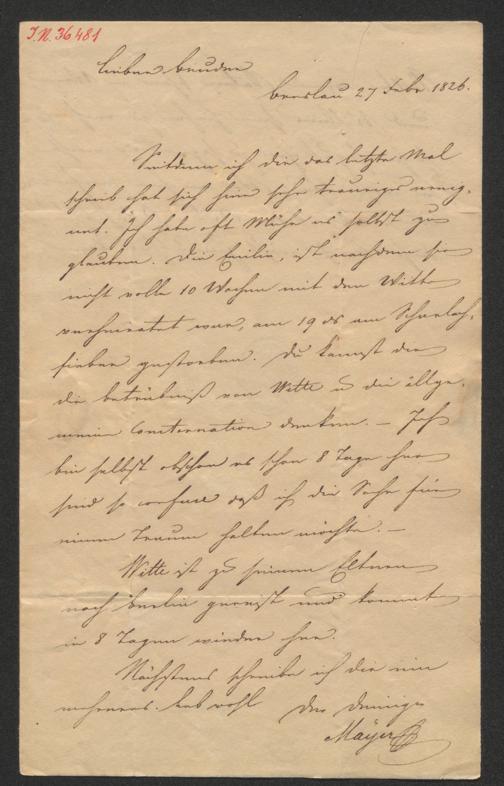 I.N. 36481
lieber bruder
breslau 27 Febr 1826.
Seitdem ich dir das letzte Mal
schrieb hat sich hier sehr trauriges ereig-
net. Ich habe oft Mühe es selbst zu
glauben. Die Emilie, ist nachdem sie
nicht volle 10 Wochen mit dem Witte
verheiratet war, am 19 ds am Scharlach-
fieber gestorben. Du kannst dir
die betrübniß von Witte u die allge-
meine Consternation denken. – Ich
bin selbst obschon es schon 8 Tage her
sind so confus daß ich die Sache für
einen Traum halten möchte. –
Witte ist zu seinen Eltern
nach berlin gereist und kommt
in 8 Tagen wieder her.
Nächstens schreibe ich dir ein
mehreres. leb wohl der deinige
Mayer